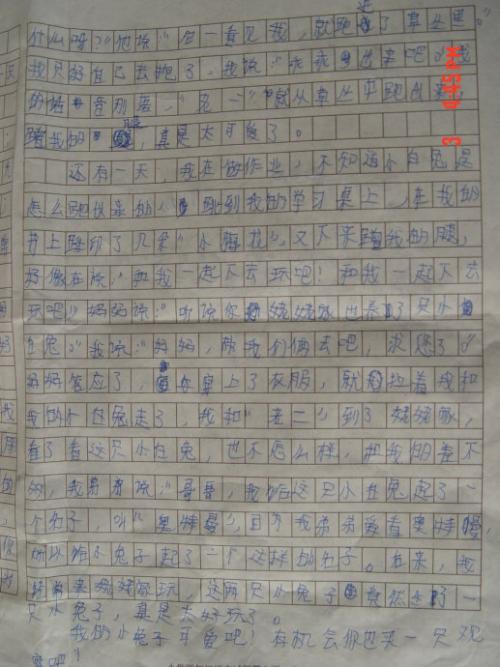 什么呀?”他说:“它一看见我,就跑进了草丛里。”
我只好自己去抱了。我说:“乖乖出来吧”我
的话音刚落,“兔一”就从草丛中跑出来,
蹭我的,真是太可爱了。
还有一天,我在做作业,不知道小白兔是
怎么跑出来的,跑到我的学习桌上,在我的
书上踏印了几朵“小梅花”,又下来蹭我的腿,
好像在说:“和我一起下去玩吧!和我一起下去
玩吧”妈妈说:“听说你姥姥家也养了只小
白兔”我说:“妈妈,散我们俩去吧,求您了”
妈妈答应了,穿上了衣服,就拉着我和
我的小白兔走了,我和“老二”到了姥姥家,
看了看这只小白兔,也不怎么样,和我的差不
的,我弟弟说:“哥哥,我给这只小白兔起了一
个名子,叫“奥特曼”,因为我弟弟爱看奥特曼,
所以给小兔子起了一个这样的名子。后来,我
经常来姥姥家玩,这两只小兔子竟然生了一
只小兔子,真是太好玩了。
我的小兔子可爱吧!有机会你也来一只观
赏吧!
3 4:45PM